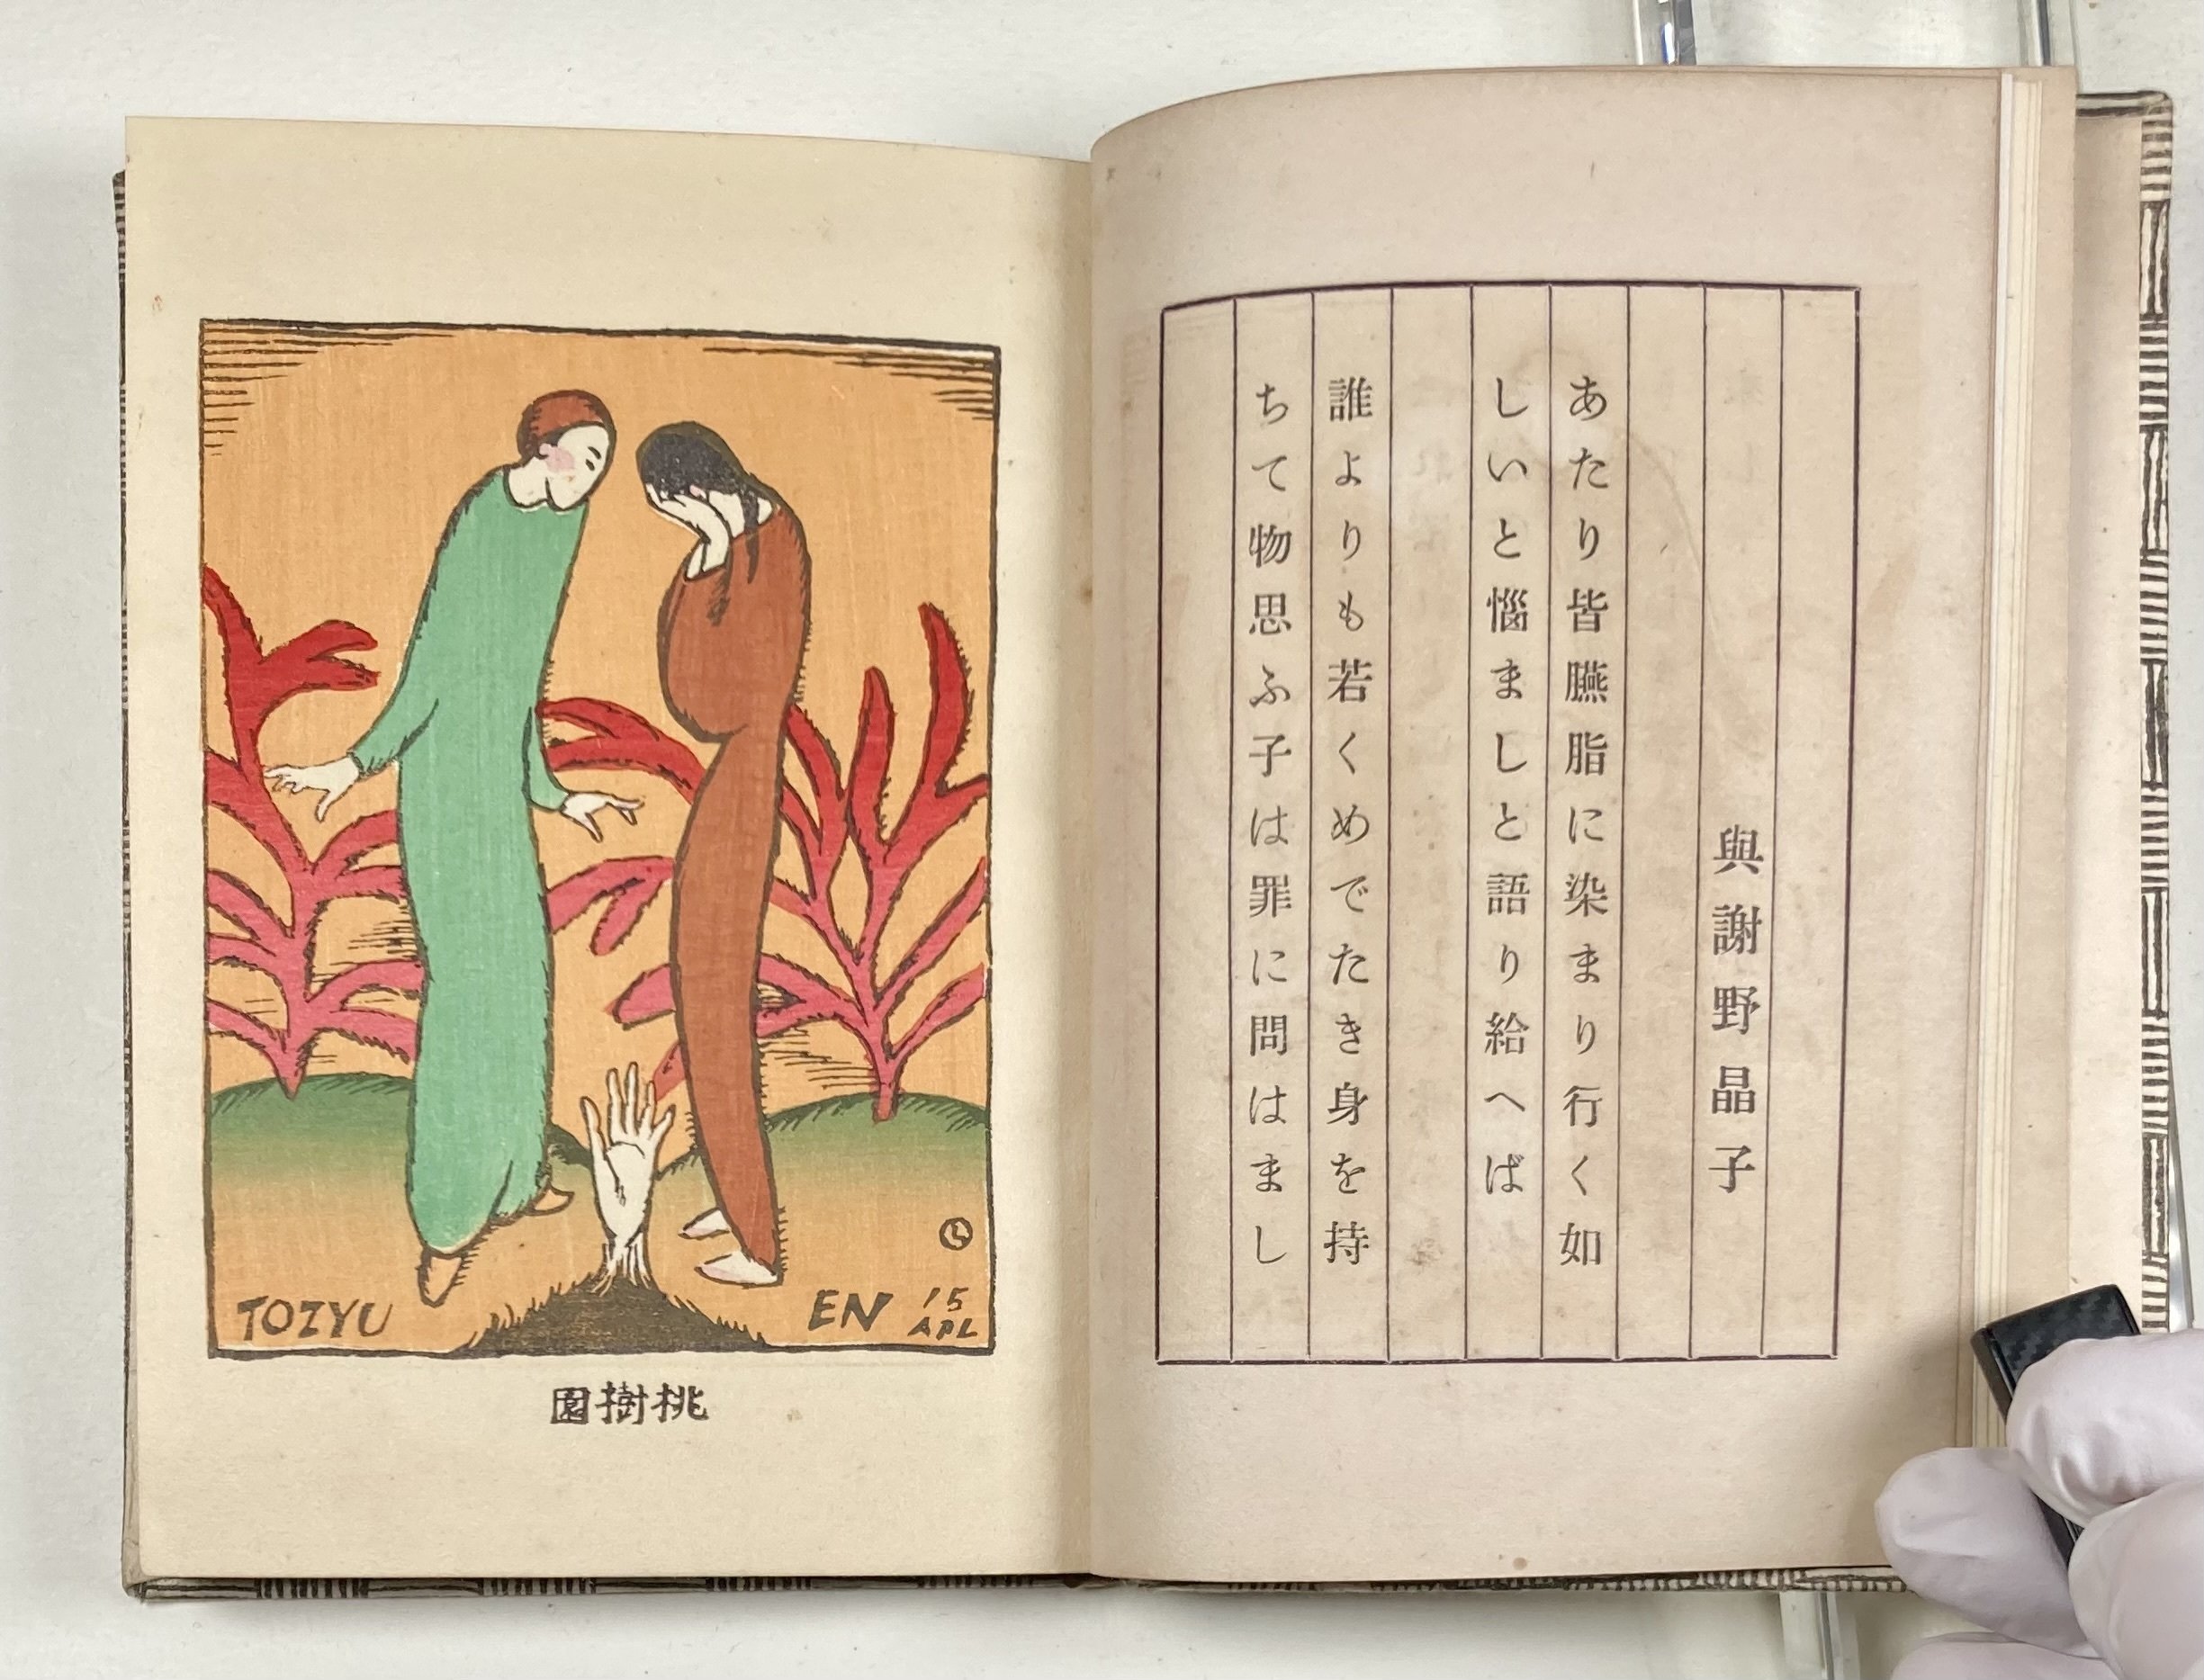 與謝野晶子
あたり皆臙脂に染まり行く如
しいと惱ましと語り給へば
誰よりも若くめでたき身を持
ちて物思ふ子は罪に問はまし
TOZYU EN
'15
APL
桃樹園